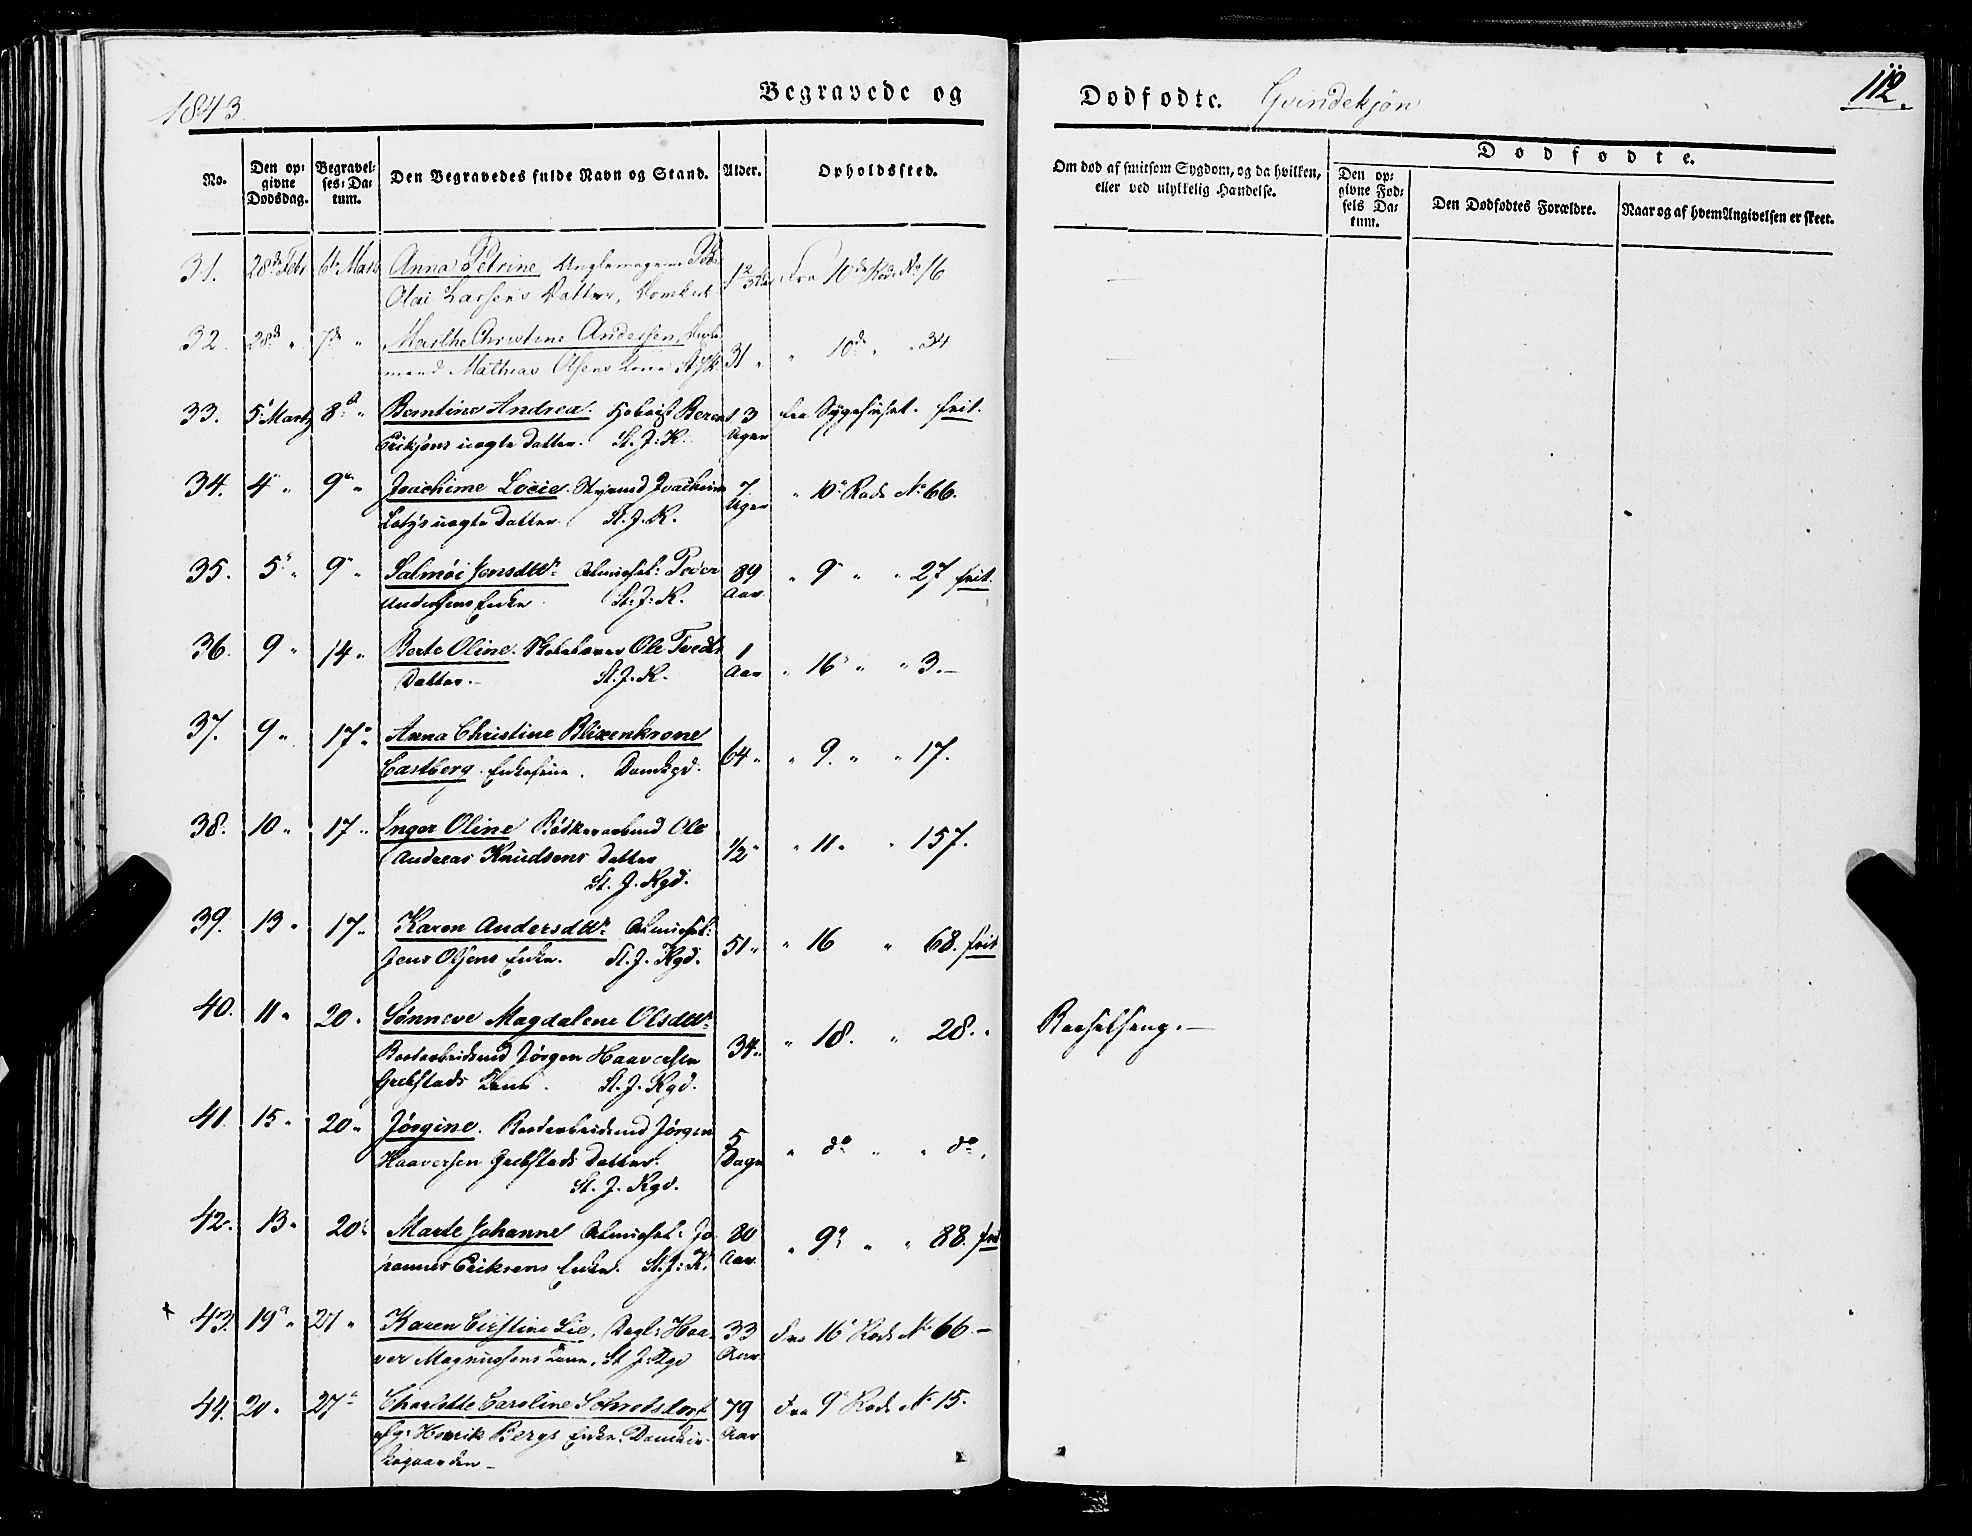 1843.
Begravede og
Dødfødte. Qvindekjøn
112.
No.
Den opgivne Dødsdag.
Begravelses-Datum.
Den Begravedes fulde Navn og Stand.
Alder.
Opholdssted.
Om død af smitsom Sygdom, og da hvilken, eller ved ulykkelig Hændelse.
Dødfødte.
Den opgivne Fødsels Datum.
Den Dødfødtes Forældre.
Naar og af hvem Angivelsen er skeet.
31. 28de Febr 6te Marts Anna Petrine Fra 10de Rode No 16
Olai Larsens Datter, Domk
32. 28de " 7de " Marthe Christine Andersen, 31 " " 10de " " 34
mand Mathias Olsens Kone St. J. K.
33. 5 Martz 8d " Berntine Andrea. Berent 3 Uger fra Sygehuset. frit.
Eriksens uægte Datter. St. J. K.
34. 4 " 9 " Joachime Lovise. Styrmd Joachim 7 Uger " 10 Rode No 66.
uægte Datter. St. J. K.
35. 5 " 9 " Salmøi Jensdttr Almisсl: Peder 89 Aar " 9 " " 27 frit.
Andersens Enke St. J. K.
36. 9 " 14 " Berte Oline. Ole Tvedts 1 Aar " 16 " " 3.—
Datter.— St. J. K.
37. 9 " 17 " Anna Christine Blixenkrone
Castberg. Enkefrue. Domkgd. 64 " " 9. " " 17.
38. 10 " 17 " Inger Oline Bødkerarbmd Ole
Andreas Knudsens Datter 1/2 " " 11. " 157.
St. J. Kgd.
39. 13 " 17 " Karen Andersdttr
Jens Olsens Enke. St. J. Kgd. 51 " " 16 " 68. frit
40. 11 " 20 " Sønneve Magdalene Olsdttr
Jørgen Haaversen 34 " " 18. " 28. " Barselseng.—
Grebstads Kone. St. J. Kgd.
41. 15 " 20 " Jørgine. Jørgen 5 Dage " do " " do.
Haaversen Grebstads Datter.
St. J. Kgd.
42. 13 " 20 " Marte Johanne Jo- 80 Aar. " 9 " " 88. frit
hannes Eriksens Enke. St. J. K.
+ 43. 19 " 27 " Karen Cirstine Lie, Dagl: Haa- 33 Aar Fra 16 Rode No 66.—
ver Magnussens Kone, St. J. Kgd
44. 20 " 27 " Charlotte Caroline 79 Aar Fra 9 Rode No 15.
Henrik Bergs Enke. Domkir-
kegaarden—